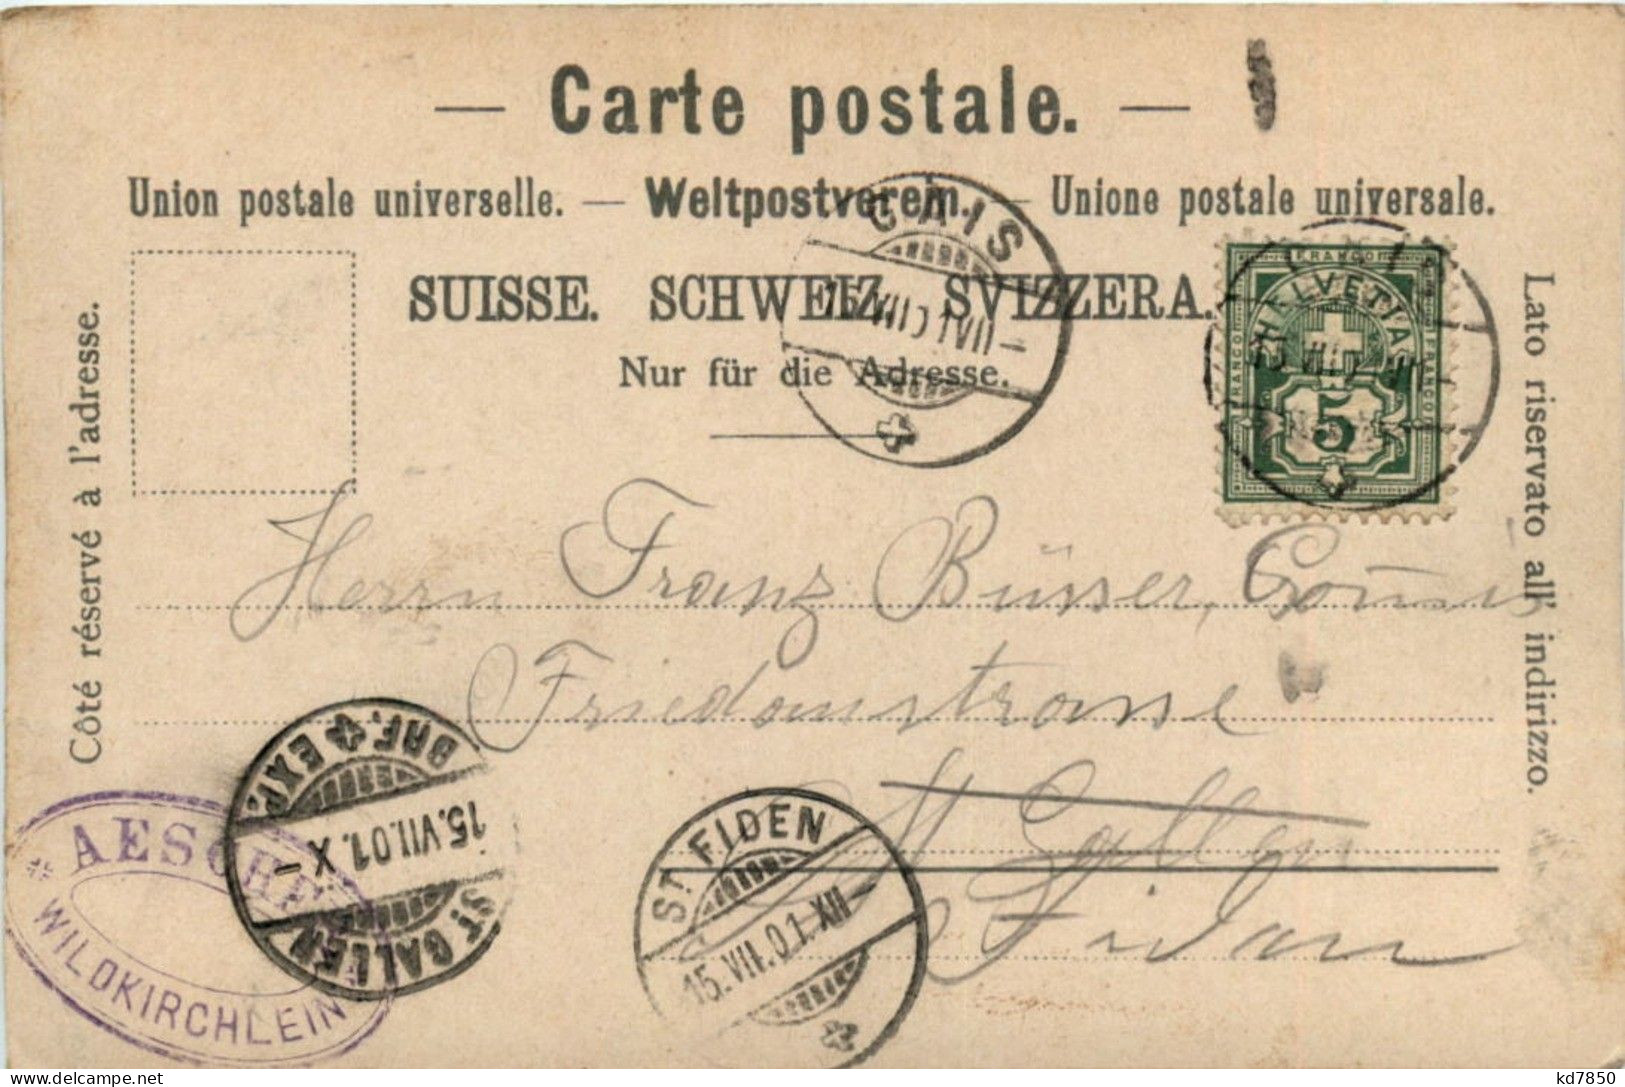 — Carte postale. —
Union postale universelle. — Weltpostverein. — Unione postale universale.
SUISSE. SCHWEIZ. SVIZZERA.
Nur für die Adresse.
Côté réservé à l'adresse.
Lato riservato all' indirizzo.
GAIS
FRANCO
HELVETIA
FRANCO
FRANCO
5
Herrn Franz Büsser,
St. Gallen
Fiden
BRF. EXP.
15.VII.01. X–
ST. GALLEN
ST. FIDEN
15. VII. 01. XII–
AESCHER
WILDKIRCHLEIN
kd7850